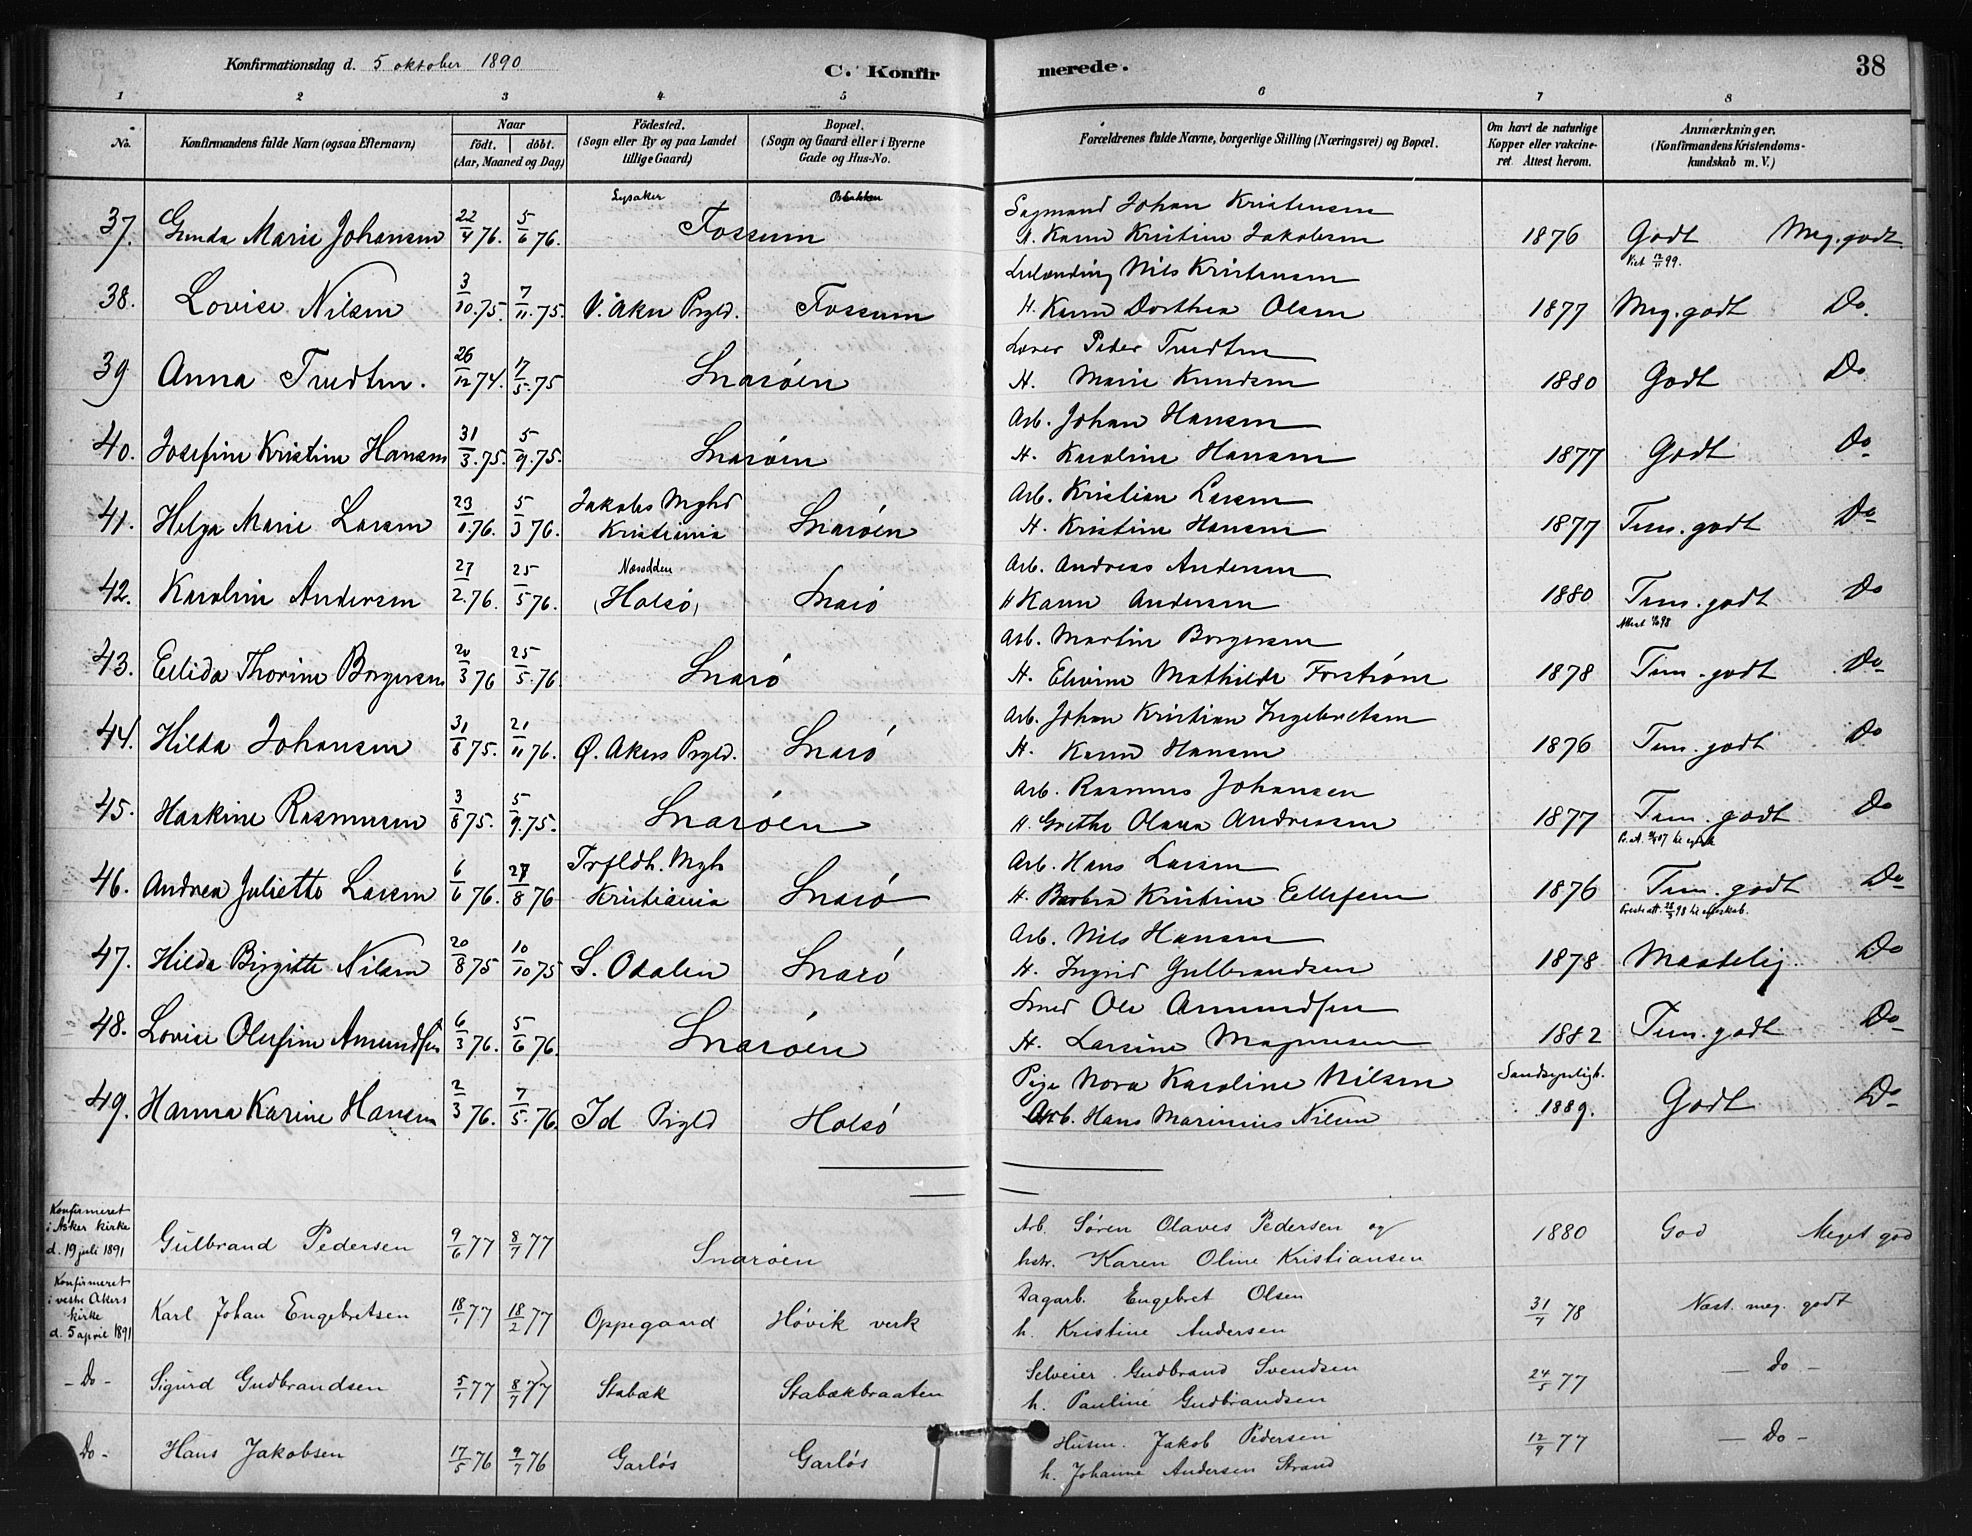 Konfirmationsdag d. 5 oktober 1890
C. Konfirmerede.
38
1 2 3 4 5 6 7 8
No. Konfirmandens fulde Navn (ogsaa Efternavn) Naar født. døbt. (Aar, Maaned og Dag) Fødested. (Sogn eller By og paa Landet tillige Gaard) Bopæl. (Sogn og Gaard eller i Byerne Gade og Hus-No. Forældrenes fulde Navne, borgerlige Stilling (Næringsvei) og Bopæl. Om havt de naturlige Kopper eller vakcineret. Attest herom. Anmærkninger. (Konfirmandens Kristendomskundskab m. V.)
Lysaker
Sagmand Johan Kristensen
37. Gunda Marie Johansen 22/4 76. 5/6 76. Fossum H. Karen Kristine Jakobsen 1876 Godt Meg. godt
Lulænding Nils Kristensen
38. Lovise Nilsen 3/10. 75. 7/11. 75. V. Aker Prgld. Fossum H. Karen Dorthea Olsen 1877 Meg. godt Do.
Peder Trudtsen
39 Anna Trudtsen. 26/12 74. 17/5. 75 Snarøen H. Marie Knudsen 1880 Godt Do
Arb. Johan Hansen
40. Josefine Kristine Hansen 31/3. 75. 5/9. 75. Snarøen H. Karoline Hansen 1877 Godt Do
Arb. Kristian Larsen
41. Helga Marie Larsen 23/1. 76. 5/3 76. Jakobs Mghd Kristiania Snarøen H. Kristine Hansen 1877 Tem. godt Do
Næsodden
Arb. Andreas Andersen
42. Karoline Andersen 27/2. 76. 25/5 76. (Halsø) Snarø H Karen Andersen 1880 Tem. godt Do
Arb. Martin Borgersen
43. Ellida Thorine Borgersen 20/3 76 25/5. 76. Snarø H. Elvine Mathilde Forstrøm 1878 Tem. godt Do
Arb. Johan Kristian Ingebretsen
44. Hilda Johansen 31/8 75. 21/11 76. Ø. Akers Prgld. Snarø H. Karen Hansen 1876 Tem. godt Do
Arb. Rasmus Johansen
45. Haakine Rasmussen 3/8 75. 5/9. 75. Snarøen H. Grethe Olava Andreassen 1877 Tem. godt Do
Arb. Hans Larsen
46. Andrea Juliette Larsen 6/6 76. 27/8 76 Trfldh. Mgh Kristiania Snarø H. Barbra Kristine Ellefsen 1876 Tem. godt Do
Arb. Nils Hansen
47. Hilda Birgitte Nilsen 20/8 75 10/10 75 S. Odalen Snarø H. Ingrid Gulbrandsen 1878 Maadelig Do
Smed Ole Amundsen
48. Lovise Olufine Amundsen 6/3 76. 5/6 76. Snarøen H. Larsine Magnussen 1882 Tem. godt Do
Pige Nora Karoline Nilsen Sandsynligb.
49. Hanna Karine Hansen 2/3 76. 7/5. 76. Id Prgld Halsø Arb. Hans Marinius Nilsen 1889. Godt Do
Konfirmeret i Asker kirke d. 19 juli 1891 Gulbrand Pedersen 9/6 77 8/7 77 Snarøen Arb. Søren Olaves Pedersen og
hstr. Karen Oline Kristiansen 1880 God Meget god
Konfirmeret i vestre Akers kirke d. 5 april 1891 Karl Johan Engebretsen 18/1 77 18/2 77 Oppegaard Høvik verk Dagarb. Engebret Olsen
h. Kristine Andersen 31/7 78 Næst. meg. godt
- Do - Sigurd Gudbrandsen 5/1 77 8/7 77 Stabæk Stabækbraaten Selveier. Gudbrand Svendsen
h. Pauline Gudbrandsen 24/5 77 - do -
Do - Hans Jakobsen 17/5 76 9/7 76 Garløs Garløs Husm. Jakob Pedersen
h. Johanne Andersen Strand 12/9 77 - Do -